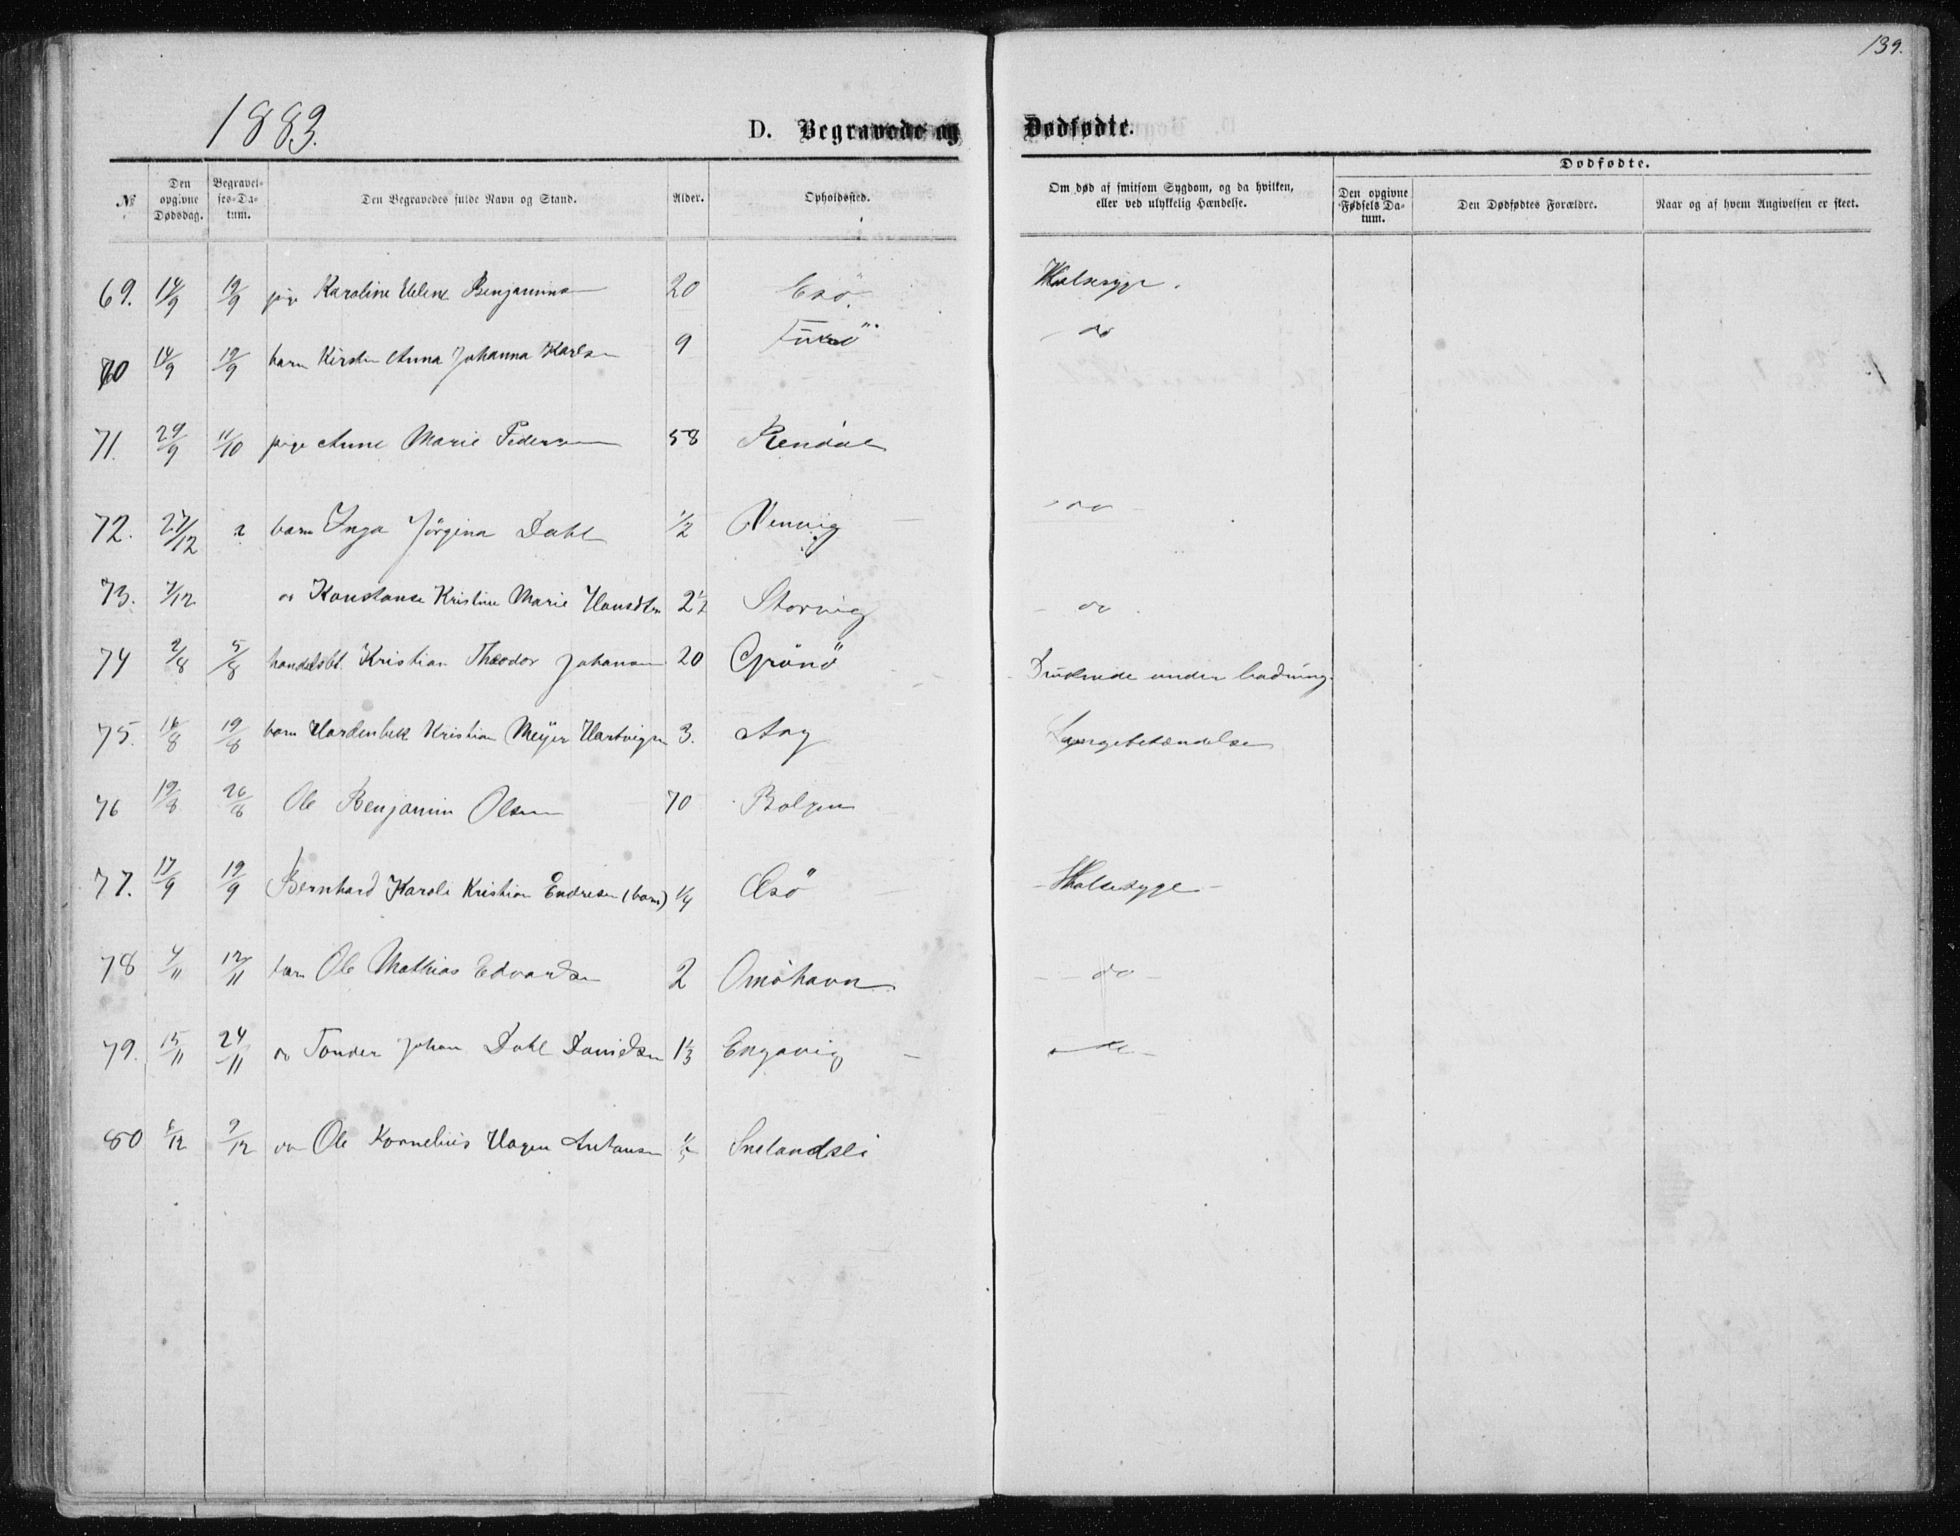 139.
1883.
D. Begravede og Dødfødte.
№
Den opgivne Dødsdag.
Begravelses-Datum.
Den Begravedes fulde Navn og Stand.
Alder.
Opholdssted.
Om død af smitsom Sygdom, og da hvilken, eller ved ulykkelig Hændelse.
Dødfødte.
Den opgivne Fødsels Datum.
Den Dødfødtes Forældre.
Naar og af hvem Angivelsen er skeet.
69. 14/9 19/9 pige Karoline Elene Benjamins 20 Esö. Halsesyge.
70 14/9 19/9 barn Kirsten Anna Johanna Karls 9 do
71. 29/9 11/10 pige Anne Marie Peders 58 Rendal
72. 27/12 barn Inga Jörgina Dahl 1/2 Venvig do
73. 7/12 do Konstanse Kristine Marie Hansdtr 2 1/2 Storvig do
74 2/8 5/8 Kristian Theodor Johansen 20 Grönö Druknede under badning.
75. 16/8 19/8 barn Hardenbek Kristian Meÿer Hartvigsen 3. Aag Lungebetændelse
76 19/8 26/8 Ole Benjamin Olsen 70 Bolgen
77. 17/9 19/9 Bernhard Karoli Kristian Endresen (barn) 1/4 Æsö Halsesyge
78 4/11 12/11 barn Ole Mathias Edvardsen 2 Omöhavn do
79. 15/11 24/11 do Tonder Johan Dahl Danielsen 1 1/3 Engavig do
80 /12 9/12 do Ole Kornelius Hagen Antonsen Snelandsli